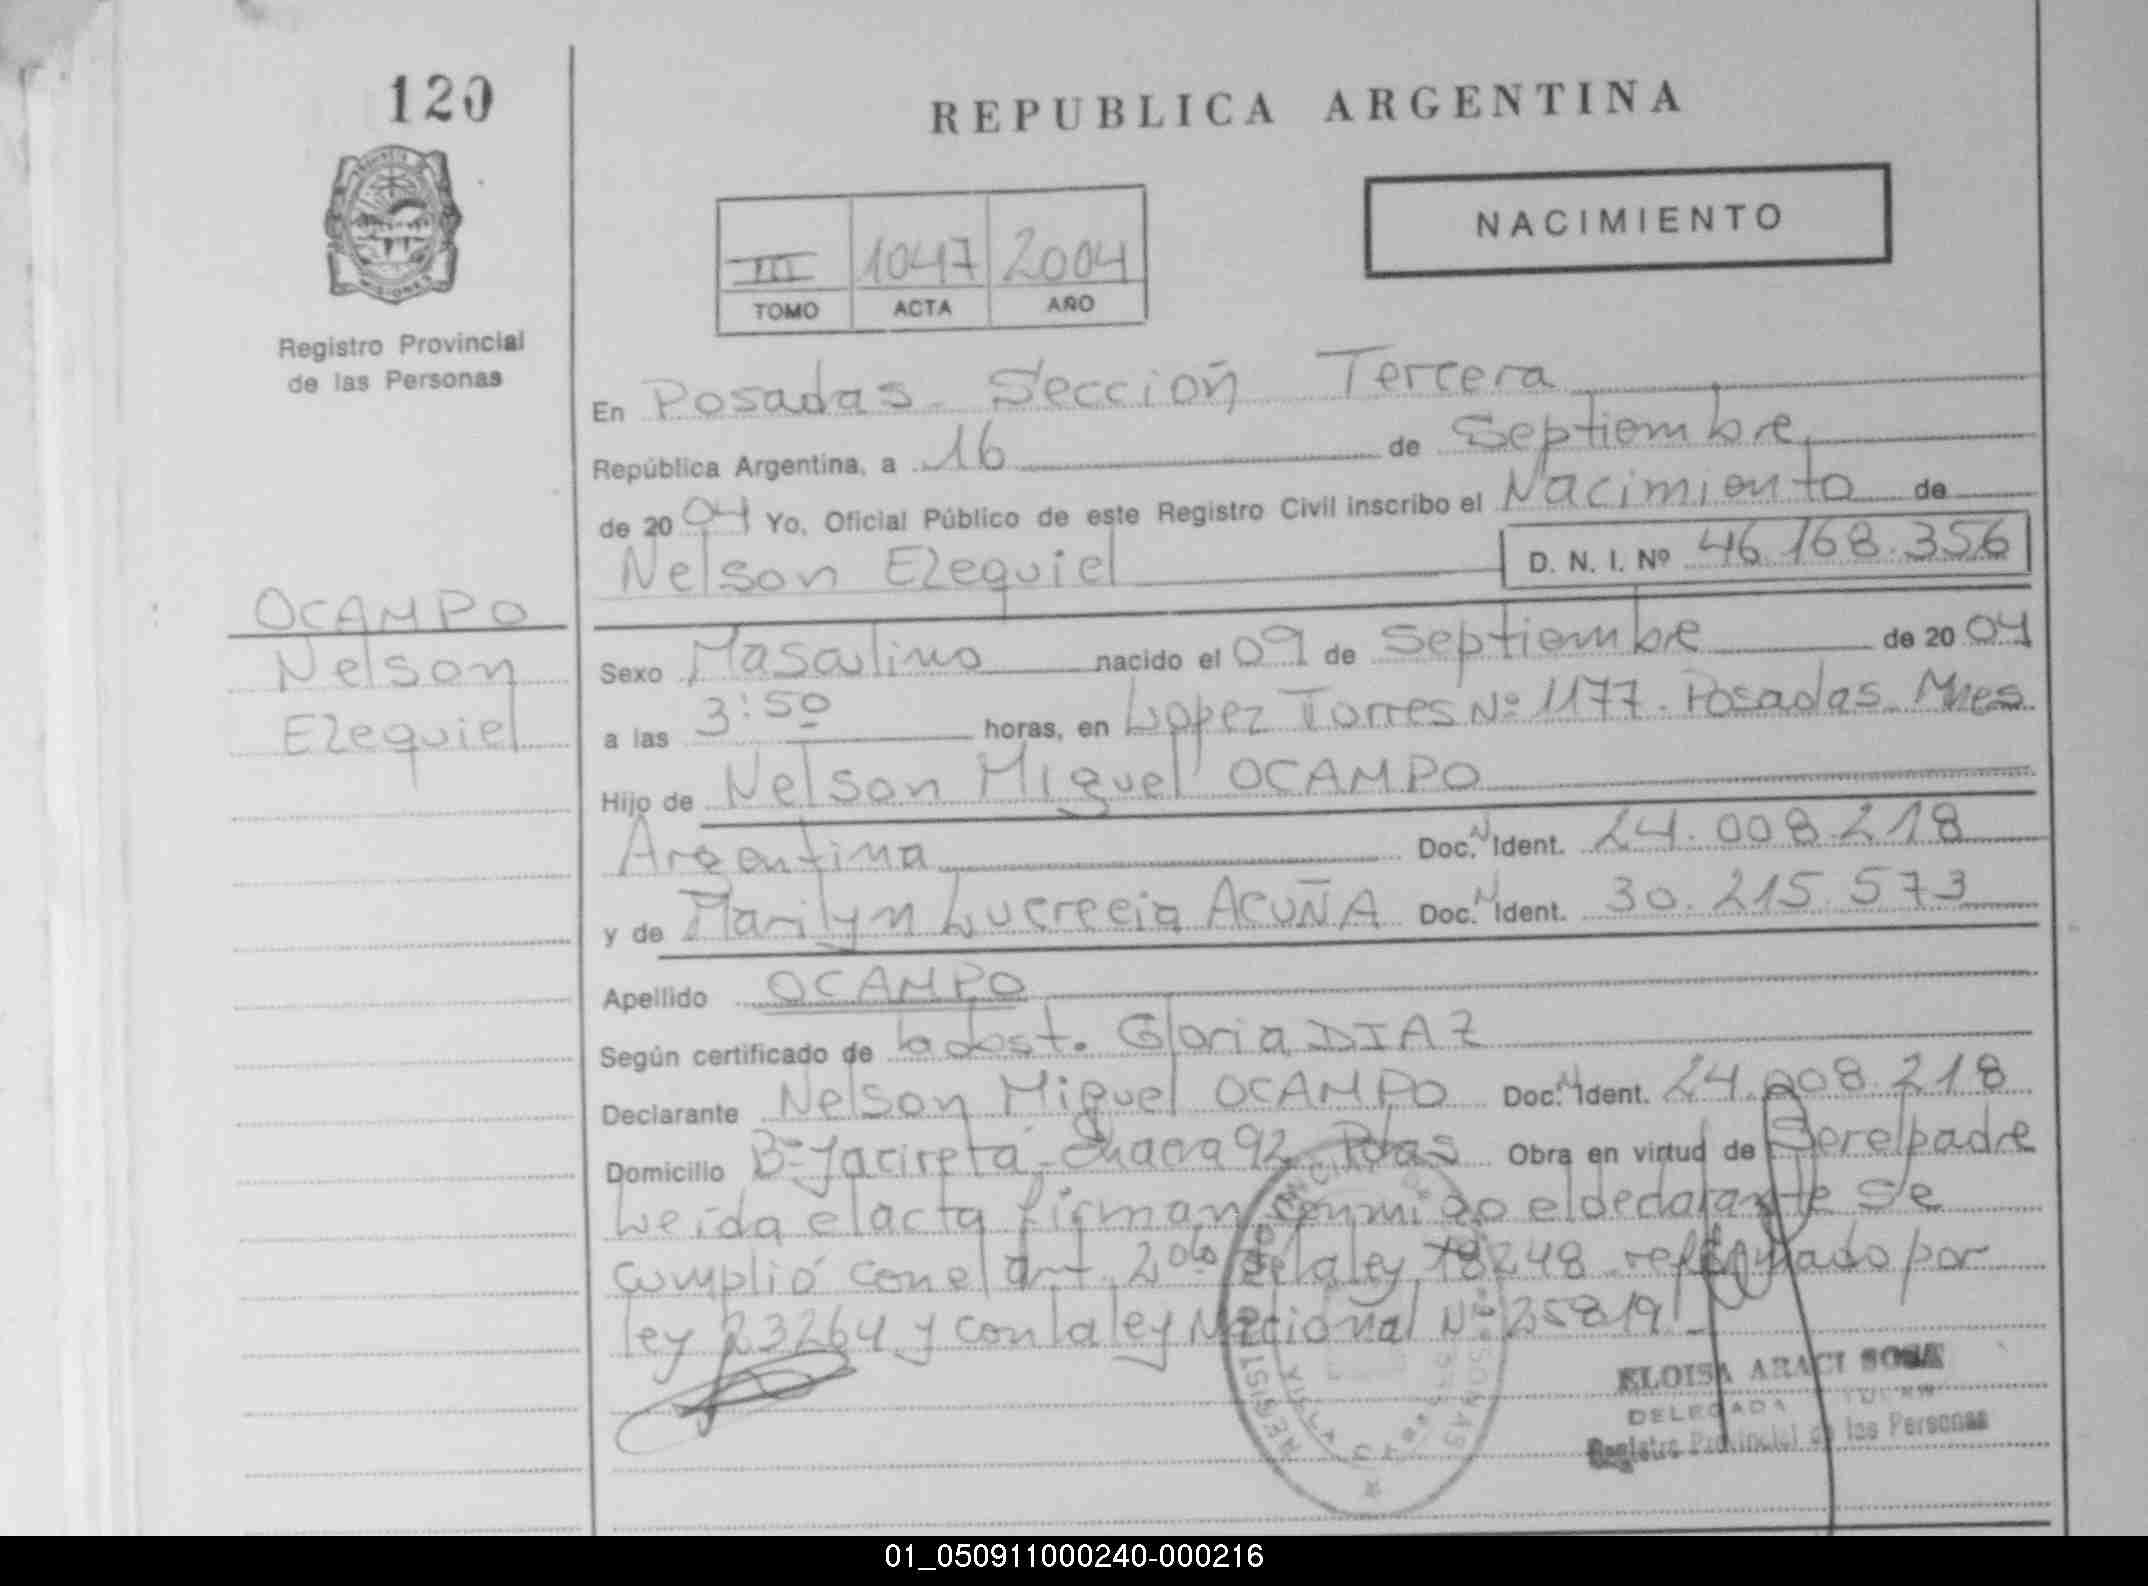 120
REPUBLICA ARGENTINA
PROVINCIA DE
MISIONES
NACIMIENTO
III 1047 2004
TOMO ACTA AÑO
Registro Provincial
de las Personas
En Posadas - Sección Tercera
República Argentina, a 16 de Septiembre
de 2004 Yo, Oficial Público de este Registro Civil inscribo el Nacimiento de
Nelson Ezequiel D. N. I. Nº 46.168.356
OCAMPO
Nelson
Ezequiel
Sexo Masculino nacido el 09 de Septiembre de 2004
a las 3:50 horas, en Lopez Torres Nº 1177. Posadas Mnes.
Hijo de Nelson Miguel OCAMPO
Argentina Doc. N Ident. 24.008.218
y de Marilyn Lucrecia ACUÑA Doc. N Ident. 30.215.573
Apellido OCAMPO
Según certificado de la obst. Gloria DIAZ
Declarante Nelson Miguel OCAMPO Doc. N Ident. 24.008.218
Domicilio Bº Yacireta - Chacra 92 Pdas Obra en virtud de Ser el padre
Leída el acta firman conmigo el declarante se
cumplió con el art. 2do de la ley 18248 reformado por
ley 23264 y con la ley Nacional Nº 25819 -
ELOISA ARACI SOSA
DELEGADA
Registro Provincial de las Personas
01_050911000240-000216